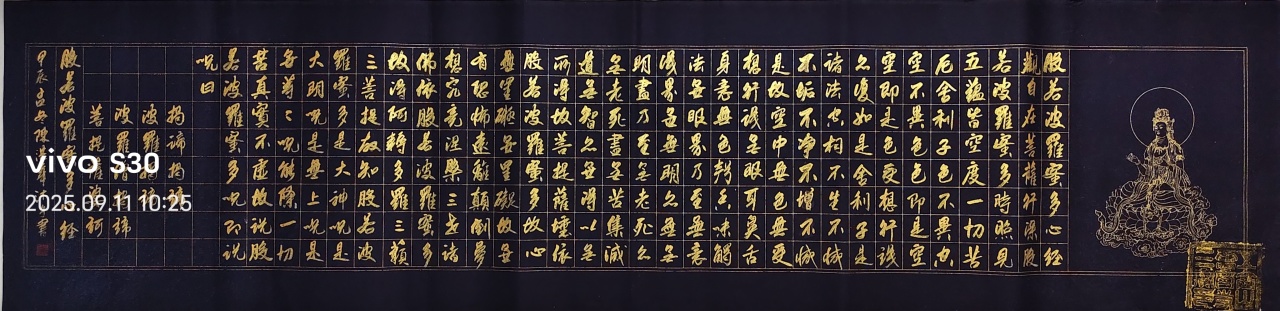 般若波羅蜜多心經
觀自在菩薩行深般
若波羅蜜多時照見
五蘊皆空度一切苦
厄舍利子色不異空
空不異色色即是空
空即是色受想行識
亦復如是舍利子是
諸法空相不生不滅
不垢不淨不增不減
是故空中無色無受
想行識無眼耳鼻舌
身意無色聲香味觸
法無眼界乃至無意
識界無無明亦無無
明盡乃至無老死亦
無老死盡無苦集滅
道無智亦無得以無
所得故菩提薩埵依
般若波羅蜜多故心
無罣礙無罣礙故無
有恐怖遠離顛倒夢
想究竟涅槃三世諸
佛依般若波羅蜜多
故得阿耨多羅三藐
三菩提故知般若波
羅蜜多是大神咒是
大明咒是無上咒是
無等等咒能除一切
苦真實不虛故說般
若波羅蜜多咒即說
咒曰
揭諦揭諦
波羅揭諦
波羅僧揭諦
菩提薩婆訶
般若波羅蜜多心經
甲辰 陳 書
vivo S30
2025.09.11 10:25